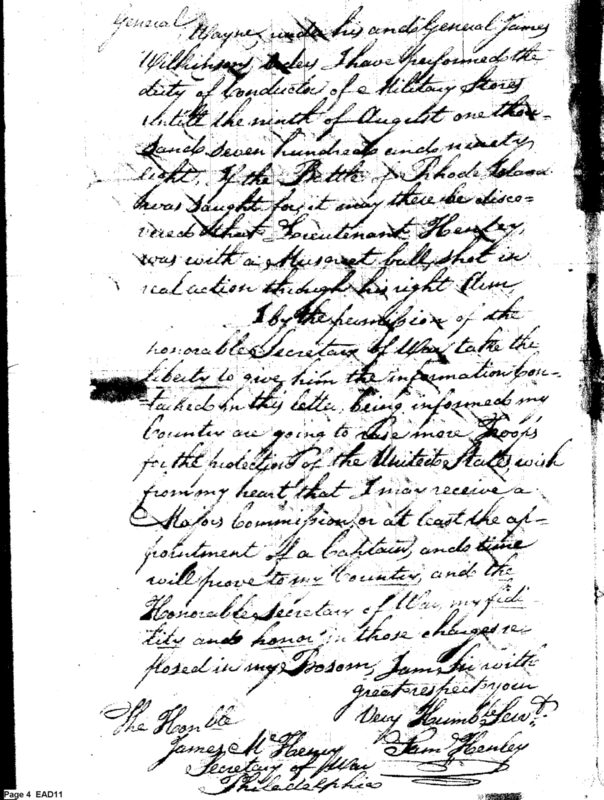 General Wayne, under his and General James
Wilkinsons, orders I have performed the
duty of Conductor of Military Stores
Untill the ninth of August one thou-
sand seven hundred and ninety
eight. If the Battle of Rhode Island
was sought for, it may there be disco-
vered that Lieutenant Henley,
was with a Musquet ball, shot in
real action through his right Arm
I by the permission of the
honorable Secretary of War, take the
liberty to give him the information Con-
tained in this letter, being informed my
Country are going to raise more Troops
for the protection of the United States wish
from my heart, that I may receive a
Majors Commission, or at least the ap-
pointment of a Captain, and time
will prove to my Country, and the
Honorable Secretary of War, my fidi-
lity and honor in those charges re-
posed in my Bosom, I am Sir with
great respect your
Very Humble Servt.
Sam Henley
The Honble
James McHenry
Secretary of War
Philadelphia
Page 4 EAD11